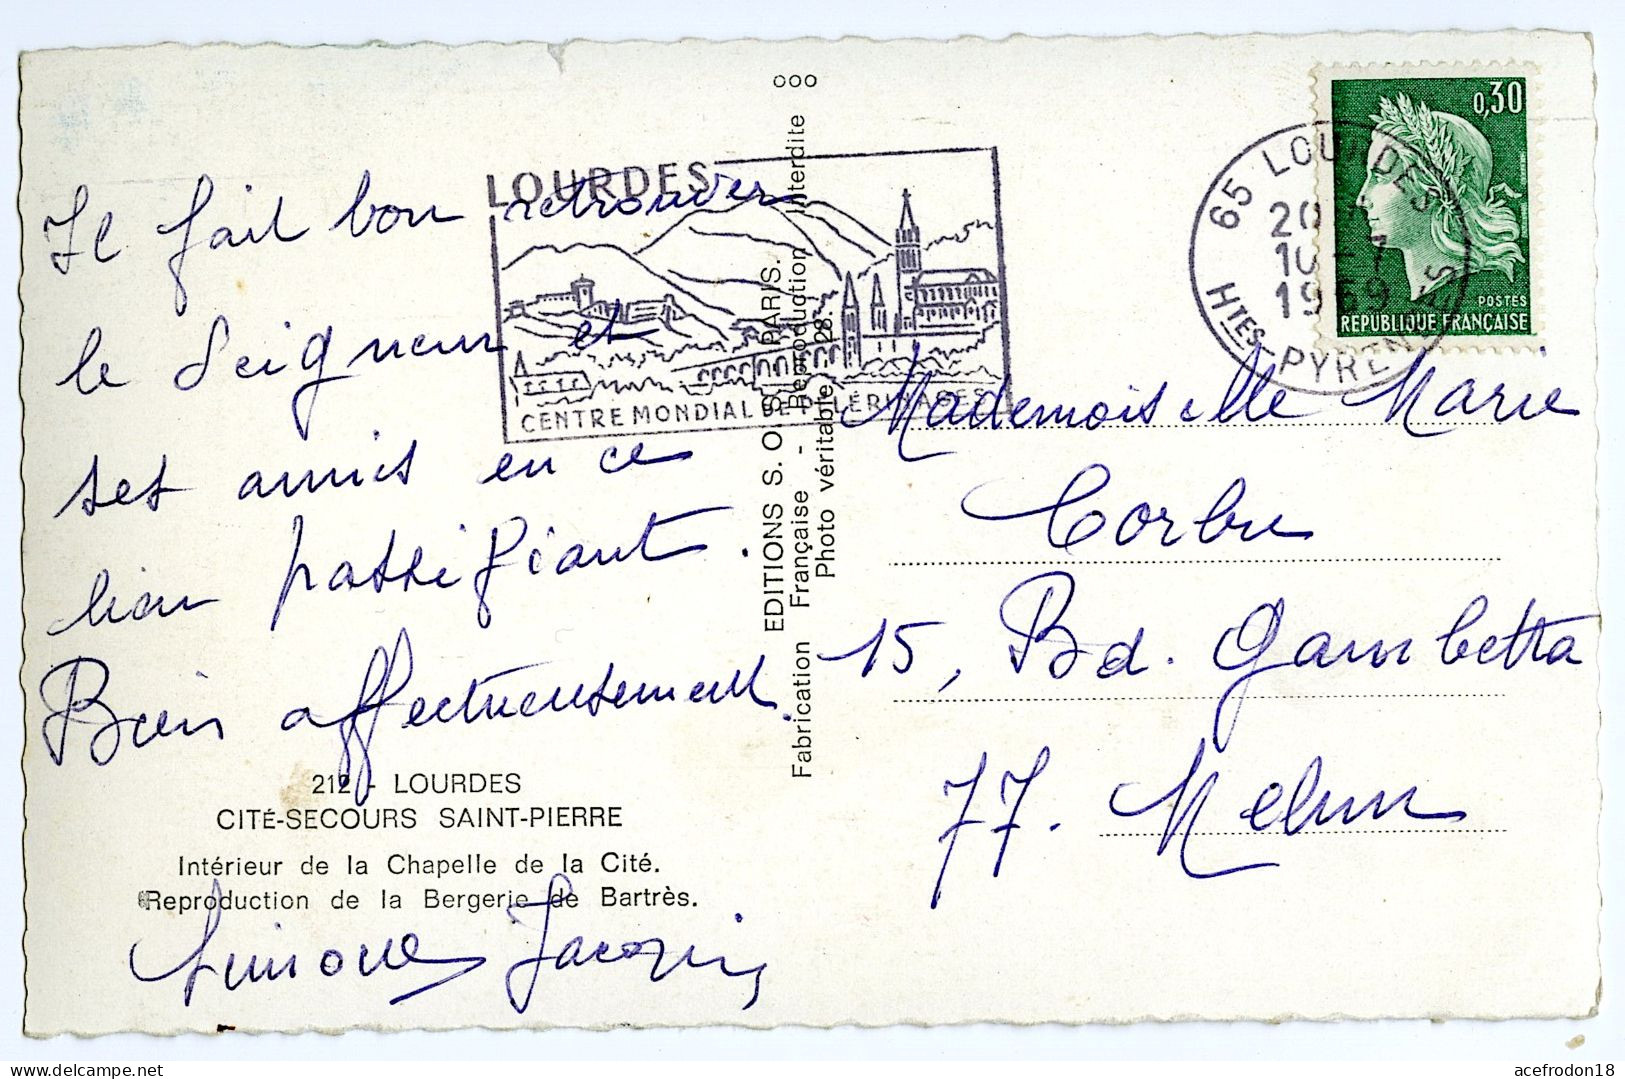 ooo
0,30
POSTES
REPUBLIQUE FRANÇAISE
65 LOURDES
20
10-7
1969
Htes PYRENEES
LOURDES
CENTRE MONDIAL DE PÈLERINAGES
Il fait bon retrouver
le Seigneur et
ses amis en ce
lieu pacifiant.
Bien affectueusement.
212 - LOURDES
CITÉ-SECOURS SAINT-PIERRE
Intérieur de la Chapelle de la Cité.
Reproduction de la Bergerie de Bartrès.
Simone Jacquin
EDITIONS S. O. S. PARIS.
Fabrication Française - Reproduction Interdite
Photo véritable - 28.
Mademoiselle Marie
Corbu
15, Bd. Gambetta
77. Melun
acefrodon18